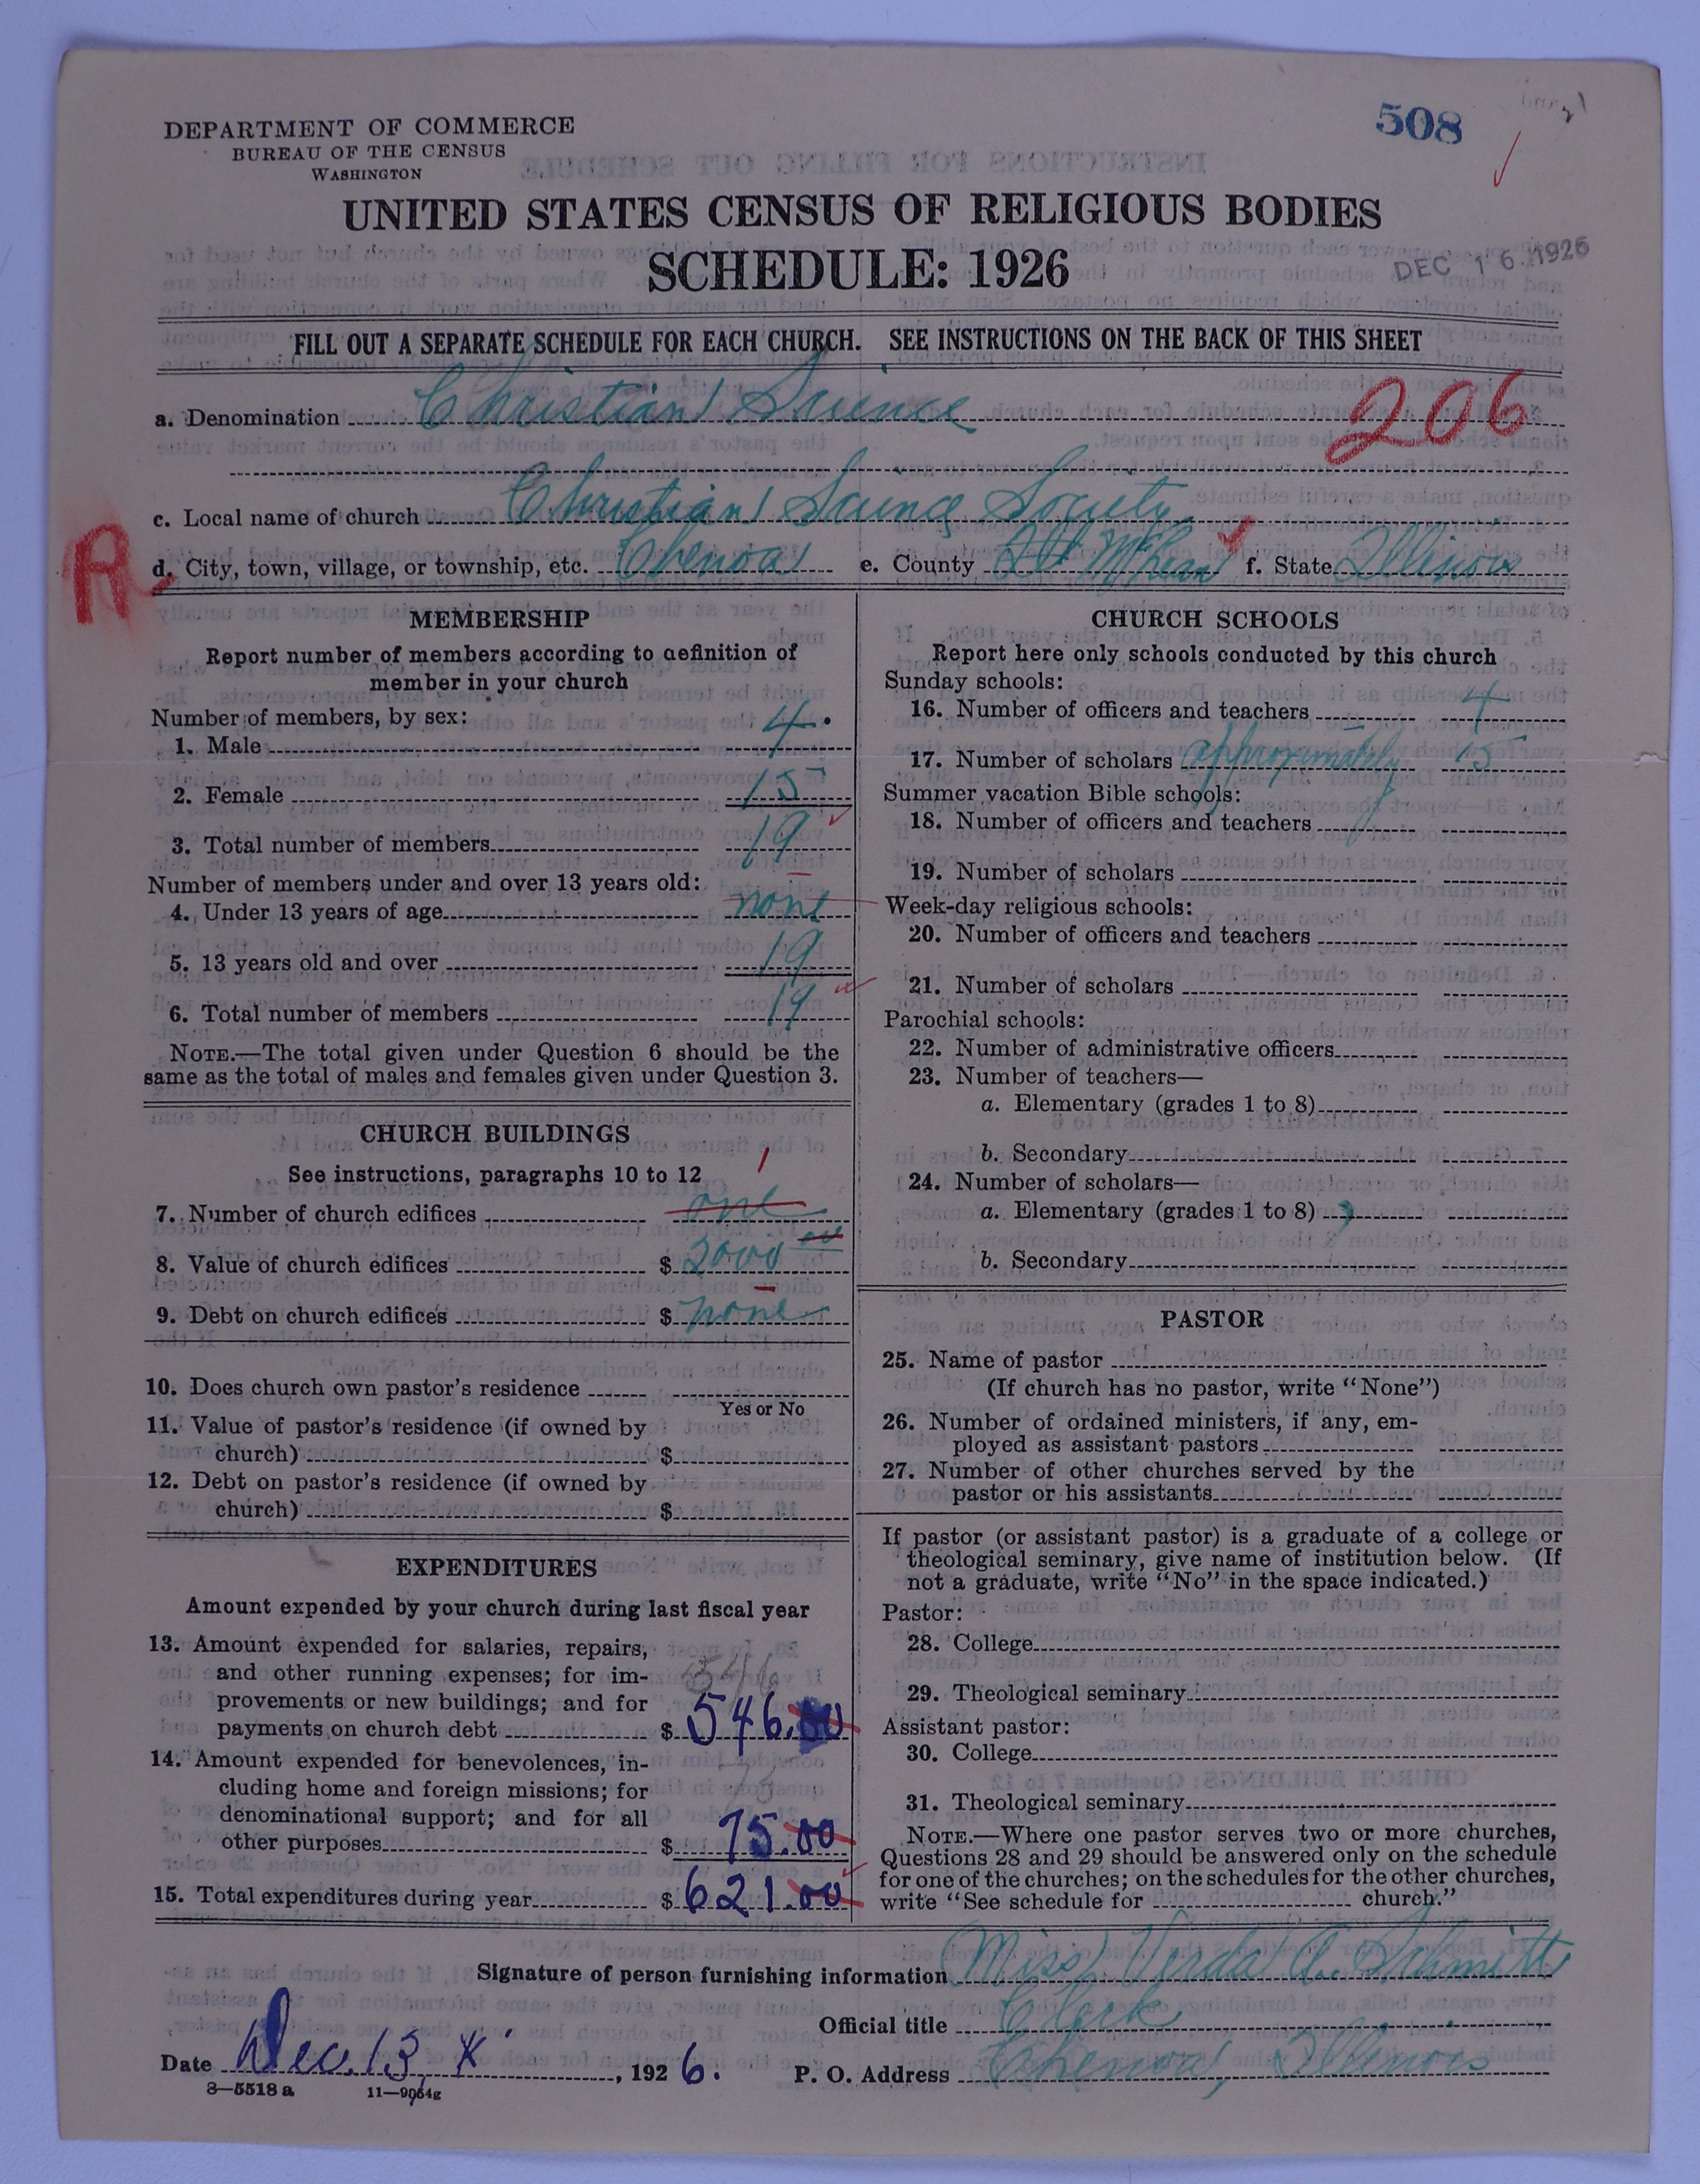 508
DEPARTMENT OF COMMERCE
BUREAU OF THE CENSUS
WASHINGTON
UNITED STATES CENSUS OF RELIGIOUS BODIES
SCHEDULE: 1926
DEC 16 1926
FILL OUT A SEPARATE SCHEDULE FOR EACH CHURCH. SEE INSTRUCTIONS ON THE BACK OF THIS SHEET
a. Denomination Christian Science
206
c. Local name of church Christian Science Society
R
d. City, town, village, or township, etc. Chenoa e. County McLean f. State Illinois
MEMBERSHIP
Report number of members according to definition of
member in your church
Number of members, by sex:
1. Male 4.
2. Female 15
3. Total number of members 19
Number of members under and over 13 years old:
4. Under 13 years of age none
5. 13 years old and over 19
6. Total number of members 19
NOTE.—The total given under Question 6 should be the
same as the total of males and females given under Question 3.
CHURCH BUILDINGS
See instructions, paragraphs 10 to 12
1
7. Number of church edifices one
8. Value of church edifices $ 2000 00
9. Debt on church edifices $ none
10. Does church own pastor's residence
Yes or No
11. Value of pastor's residence (if owned by
church) $
12. Debt on pastor's residence (if owned by
church) $
EXPENDITURES
Amount expended by your church during last fiscal year
13. Amount expended for salaries, repairs,
and other running expenses; for im-
546
provements or new buildings; and for
payments on church debt $ 546.00
14. Amount expended for benevolences, in-
cluding home and foreign missions; for
75
denominational support; and for all
other purposes $ 75.00
15. Total expenditures during year $ 621.00
CHURCH SCHOOLS
Report here only schools conducted by this church
Sunday schools:
16. Number of officers and teachers 4
17. Number of scholars approximately 15
Summer vacation Bible schools:
18. Number of officers and teachers
19. Number of scholars
Week-day religious schools:
20. Number of officers and teachers
21. Number of scholars
Parochial schools:
22. Number of administrative officers
23. Number of teachers—
a. Elementary (grades 1 to 8)
b. Secondary
24. Number of scholars—
a. Elementary (grades 1 to 8)
b. Secondary
PASTOR
25. Name of pastor
(If church has no pastor, write "None")
26. Number of ordained ministers, if any, em-
ployed as assistant pastors
27. Number of other churches served by the
pastor or his assistants
If pastor (or assistant pastor) is a graduate of a college or
theological seminary, give name of institution below. (If
not a graduate, write "No" in the space indicated.)
Pastor:
28. College
29. Theological seminary
Assistant pastor:
30. College
31. Theological seminary
NOTE.—Where one pastor serves two or more churches,
Questions 28 and 29 should be answered only on the schedule
for one of the churches; on the schedules for the other churches,
write "See schedule for church."
Signature of person furnishing information Miss Verda A. Schmitt
Official title Clerk
Date Dec. 13, 1926. P. O. Address Chenoa, Illinois
8—5518 a 11—9064g